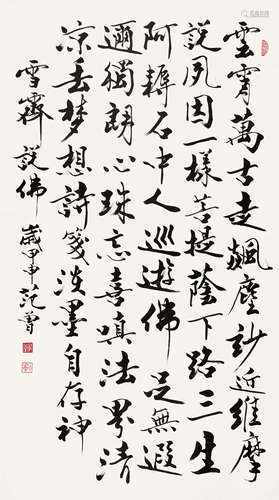 雲霄萬古走飆塵妙近維摩
說夙因一樣菩提蔭下路三生
阿耨石中人巡遊佛足無遐
邇獨朗心珠忘喜嗔法界清
涼丟夢想詩箋淡墨自存神
雪霽說佛 歲甲申范曾